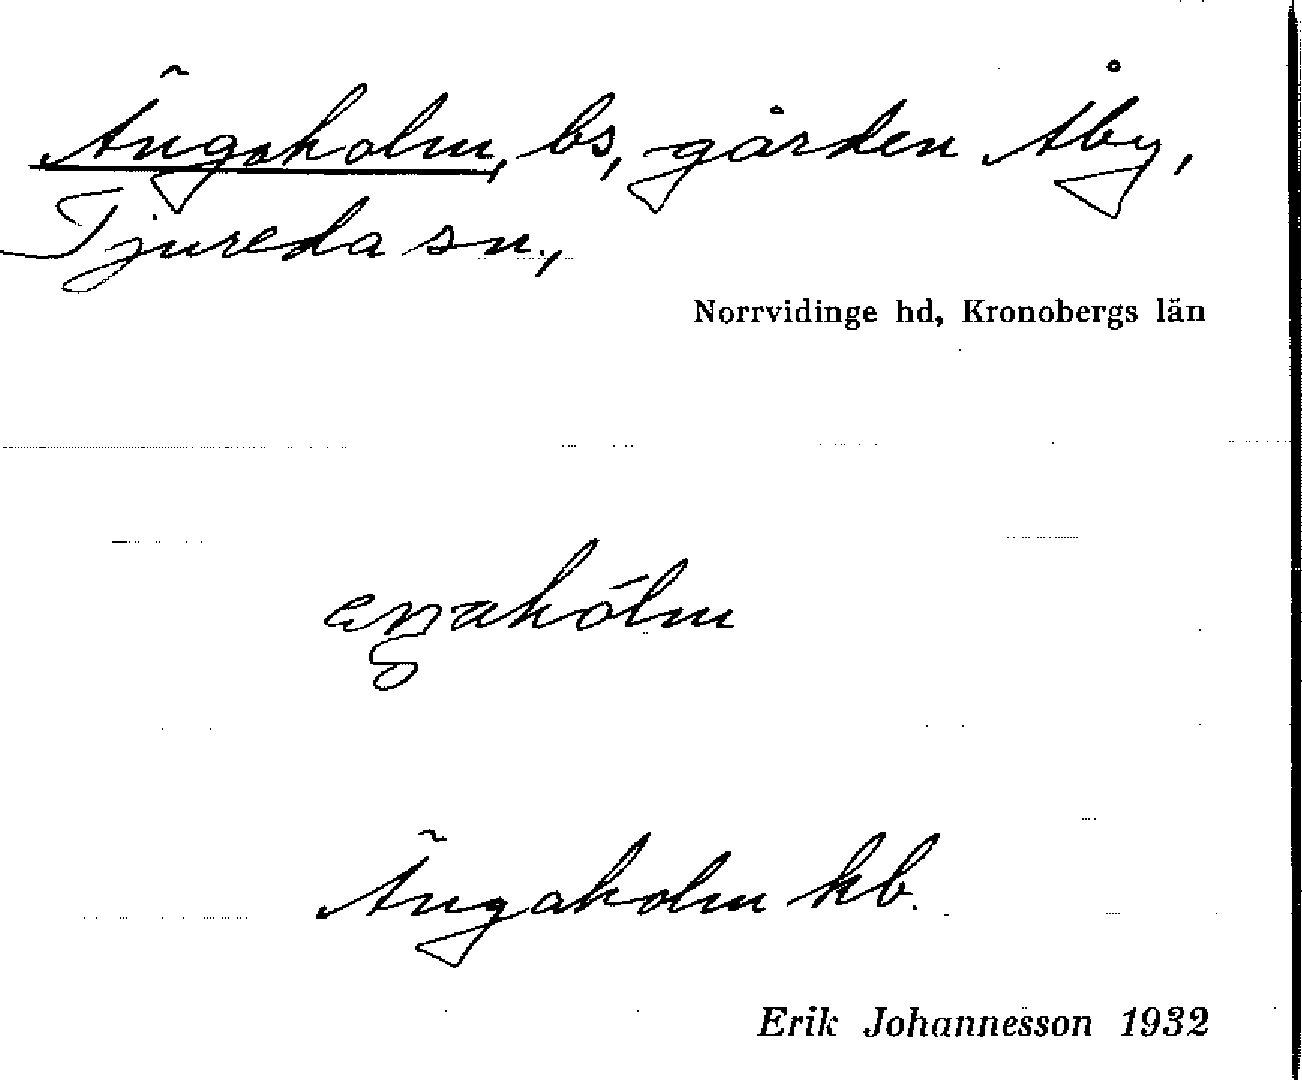 Ängaholm, bs, gården Åby,
Tjureda sn.,
Norrvidinge hd, Kronobergs län
Ängaholm kb.
Erik Johannesson 1932